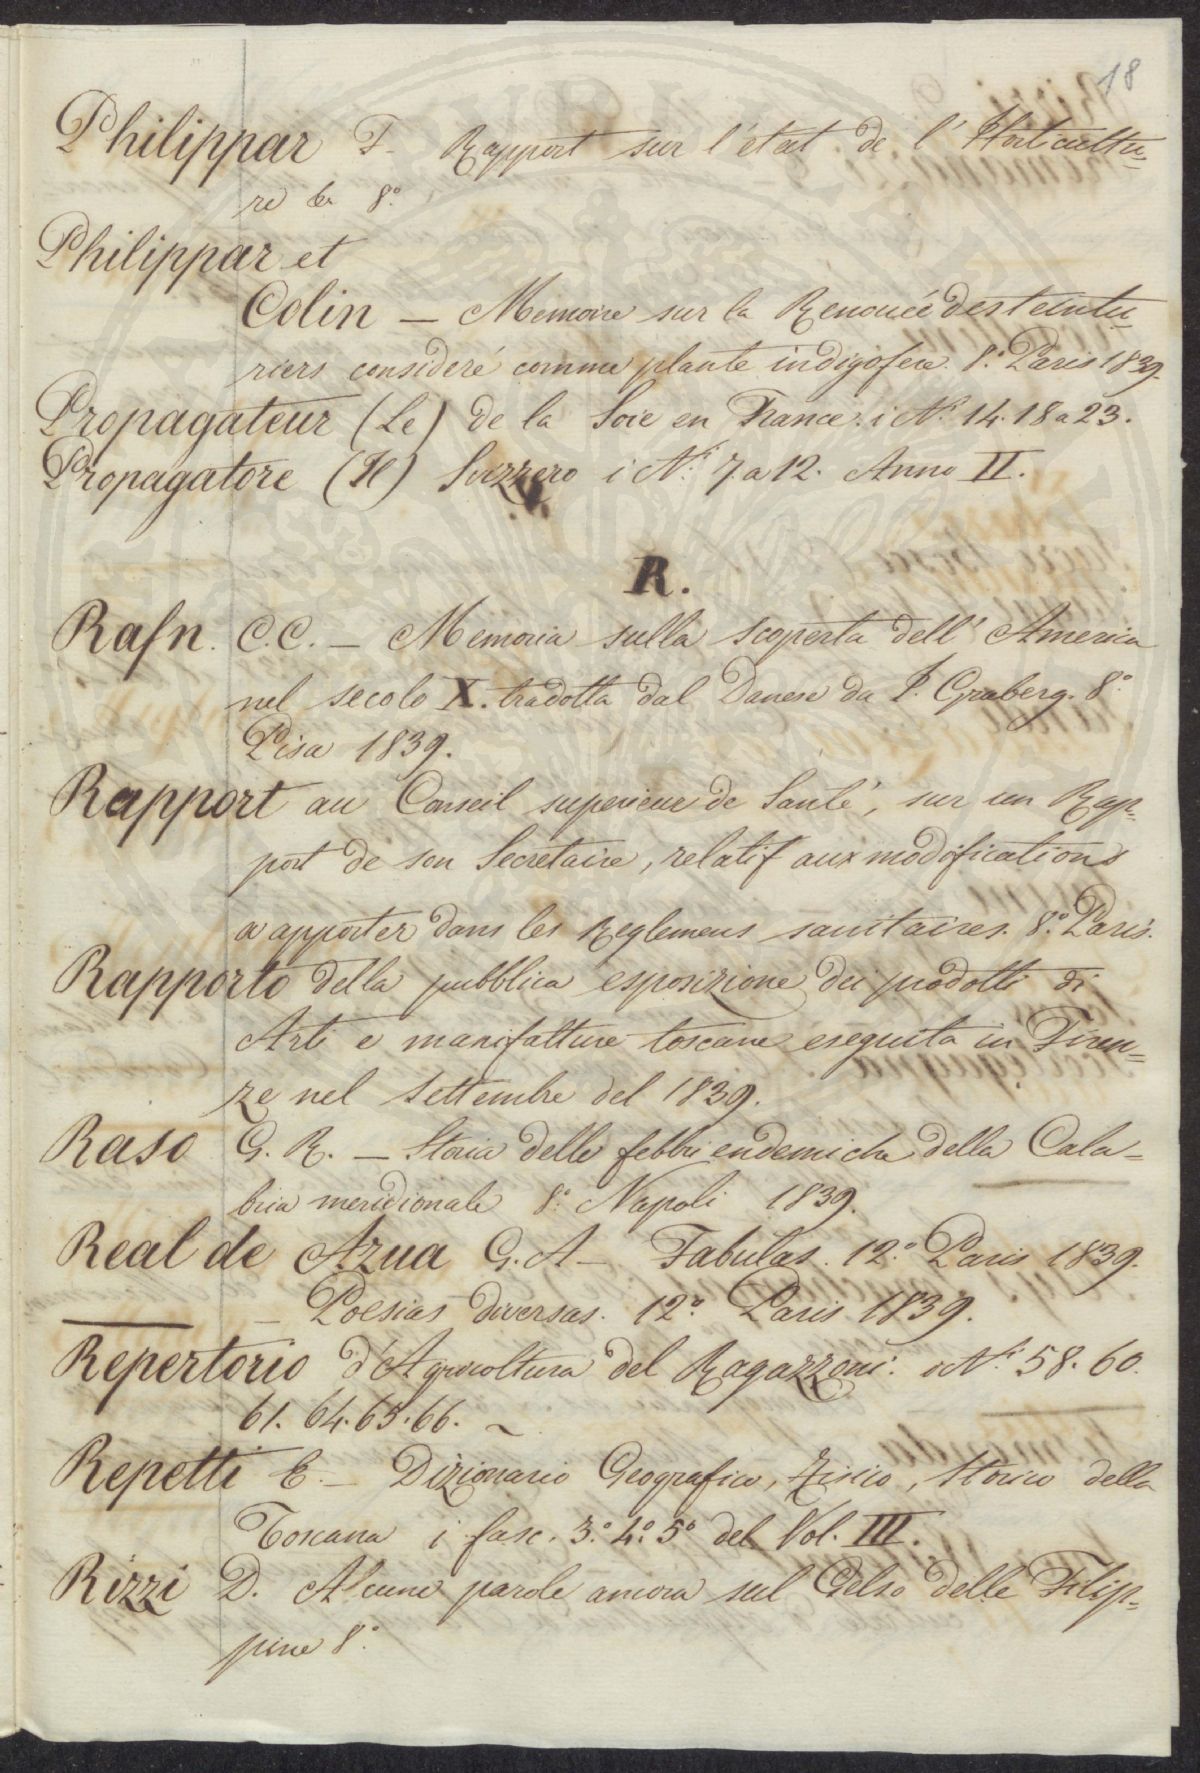 18
Philippar F. Rapport sur l'état de l'Horticultu-
re 8.°
Philippar et
Colin — Memoire sur la Renouée des teintu-
riers consideré comme plante indigofere. 8.° Paris 1839.
Propagateur (Le) de la Soie en France. i N.i 14. 18 a 23.
Propagatore (Il) Svizzero i N.i 7. a 12. Anno II.
R.
Rafn. C.C. — Memoria sulla scoperta dell'America
nel secolo X. tradotta dal Danese da J. Graberg. 8.°
Pisa 1839.
Rapport au Conseil superieur de Santé, sur un Rap-
port de son Secretaire, relatif aux modifications
a apporter dans les Reglemens sanitaires. 8.° Paris.
Rapporto della pubblica esposizione dei prodotti di
Arti e manifatture toscane eseguita in Firen-
ze nel Settembre del 1839.
Raso G. R. — Storia delle febbri endemiche della Cala-
bria meridionale 8.° Napoli 1839.
Real de Azua G. A — Fabulas. 12.° Paris 1839.
— Poesias diversas. 12.° Paris 1839.
Repertorio d'Agricoltura del Ragazzoni. i N.i 58. 60.
61. 64. 65. 66.
Repetti E — Dizionario Geografico, Fisico, Storico della
Toscana i fasc. 3.° 4.° 5.° del Vol. III.
Rizzi D. Alcune parole ancora sul Gelso delle Filip-
pine 8.°